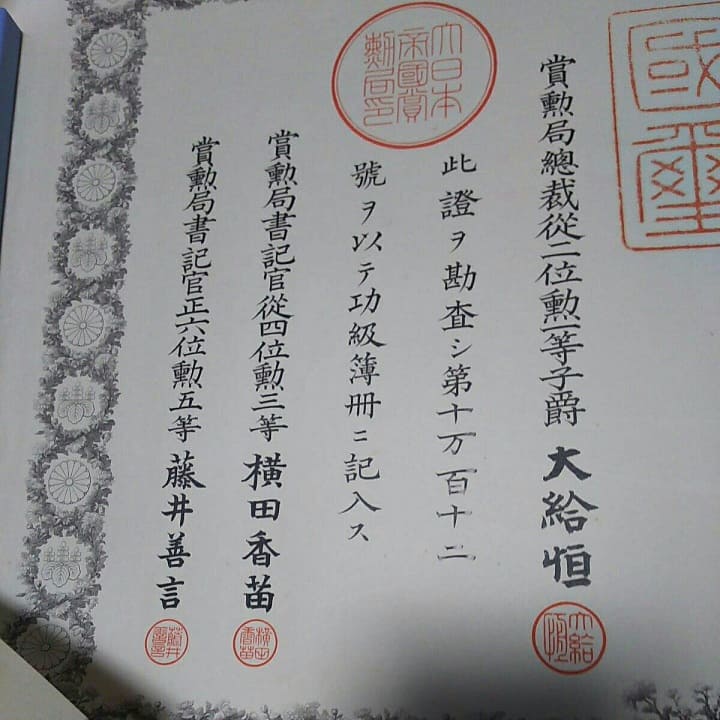 國璽
賞勲局總裁從二位勲一等子爵大給恒
大給恒
此證ヲ勘查シ第十万百十二
號ヲ以テ功級簿冊ニ記入ス
大日本帝國賞勲局印
賞勲局書記官從四位勲三等橫田香苗
橫田香苗
賞勲局書記官正六位勲五等藤井善言
藤井善言